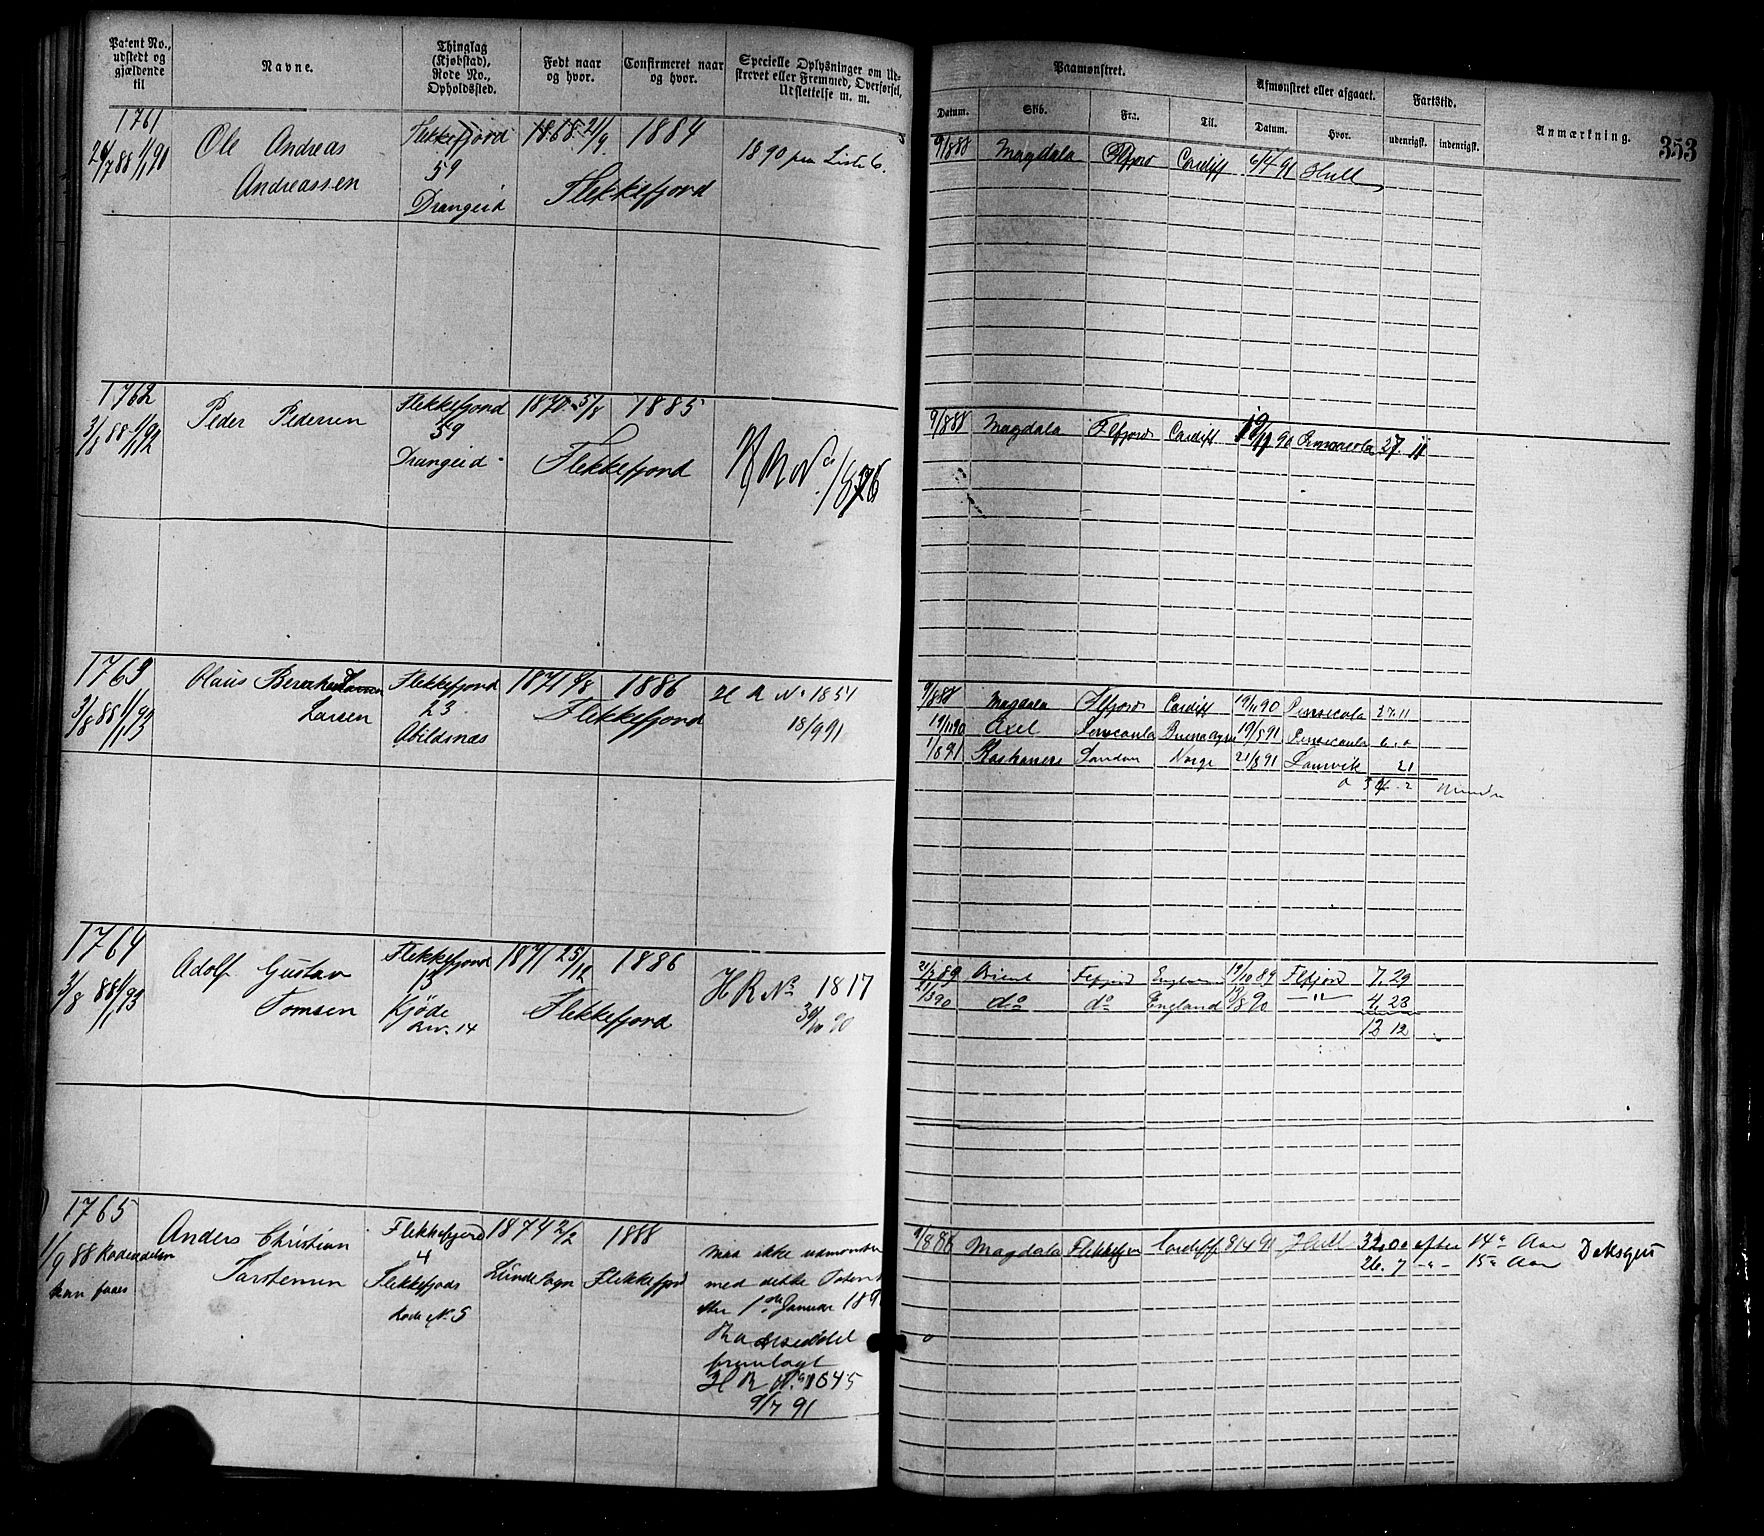 Patent No., udstedt og gjældende til
Navne.
Thinglag (Kjøbstad), Rode No., Opholdssted.
Født naar og hvor.
Confirmeret naar og hvor.
Specielle Oplysninger om Udskrevet eller Fremmed, Overførsel, Udslettelse m. m.
Paamønstret.
Afmønstret eller afgaaet.
Fartstid.
Anmærkning.
353
Datum.
Skib.
Fra.
Til.
Datum.
Hvor.
udenrigsk.
indenrigsk.
1761
Ole Andreas
Andreassen
Flekkefjord
59
Drangeid
1868 21/9
1884
Flekkefjord
1890 paa Liste 6.
9/8 88 Magdala Flfjord Cardiff 6/4 91 Hull
1762
3/8 88 1/1 92
Peder Pedersen
Flekkefjord
59
Drangeid
1870 5/8
1885
Flekkefjord
H R No 1876
9/8 88 Magdala Flfjord Cardiff 19/11 90 Pensacola 27 11
1763
3/8 88 1/1 93
Olaus
Larsen
Flekkefjord
23
Abildsnæs
1871 9/8
1886
Flekkefjord
H R No 1851
18/9 91
9/8 88 Magdala Flfjord Cardiff 19/11 90 Pensacola 27.11
19/11 90 Axel Pensacola 19/5 91 Pensacola 6.0
1/8 91 London Norge 21/8 91 21
34.2
1764
3/8 88 1/1 93
Adolf Gustav
Tomsen
Flekkefjord
13
Kjöde
Lnr. 14
1871 25/12
1886
Flekkefjord
H R No 1817
30/10 90
21/2 89 Orient Flfjord England 19/10 89 Flfjord 7.29
21/3 90 do do England /8 90 —"— 4.23
12 12
1765
1/9 88
kan faaes
Anders Christian
Torstensen
Flekkefjord
4
Flekkefjords
Rode No. 5
1874 2/2
Lunde Sogn
1888
Flekkefjord
maa ikke udmönstres
med dette Patent
før 1ste Januar 189
fremlagt
H R No 1845
9/7 91
9/8 88 Magdala Flekkefjor Cardiff 8/4 91 Hull 32.00 efter 14de Aar
26. 7 -"- 15de Aar